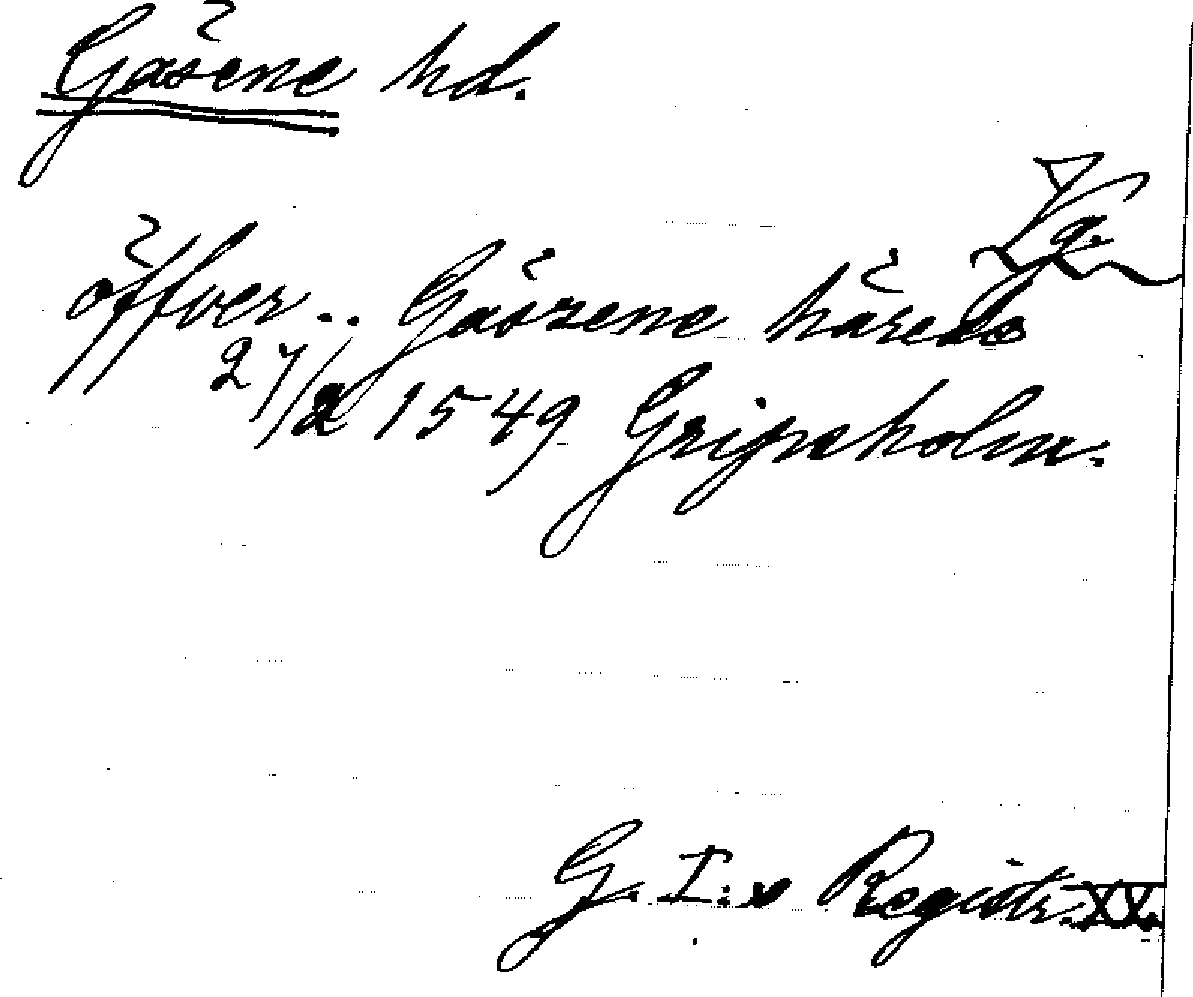 Gäsene hd.
Vg.
öffver.. Gäszene häredt
27/2 1549 Gripsholm.
G. I:s Registr. XX.